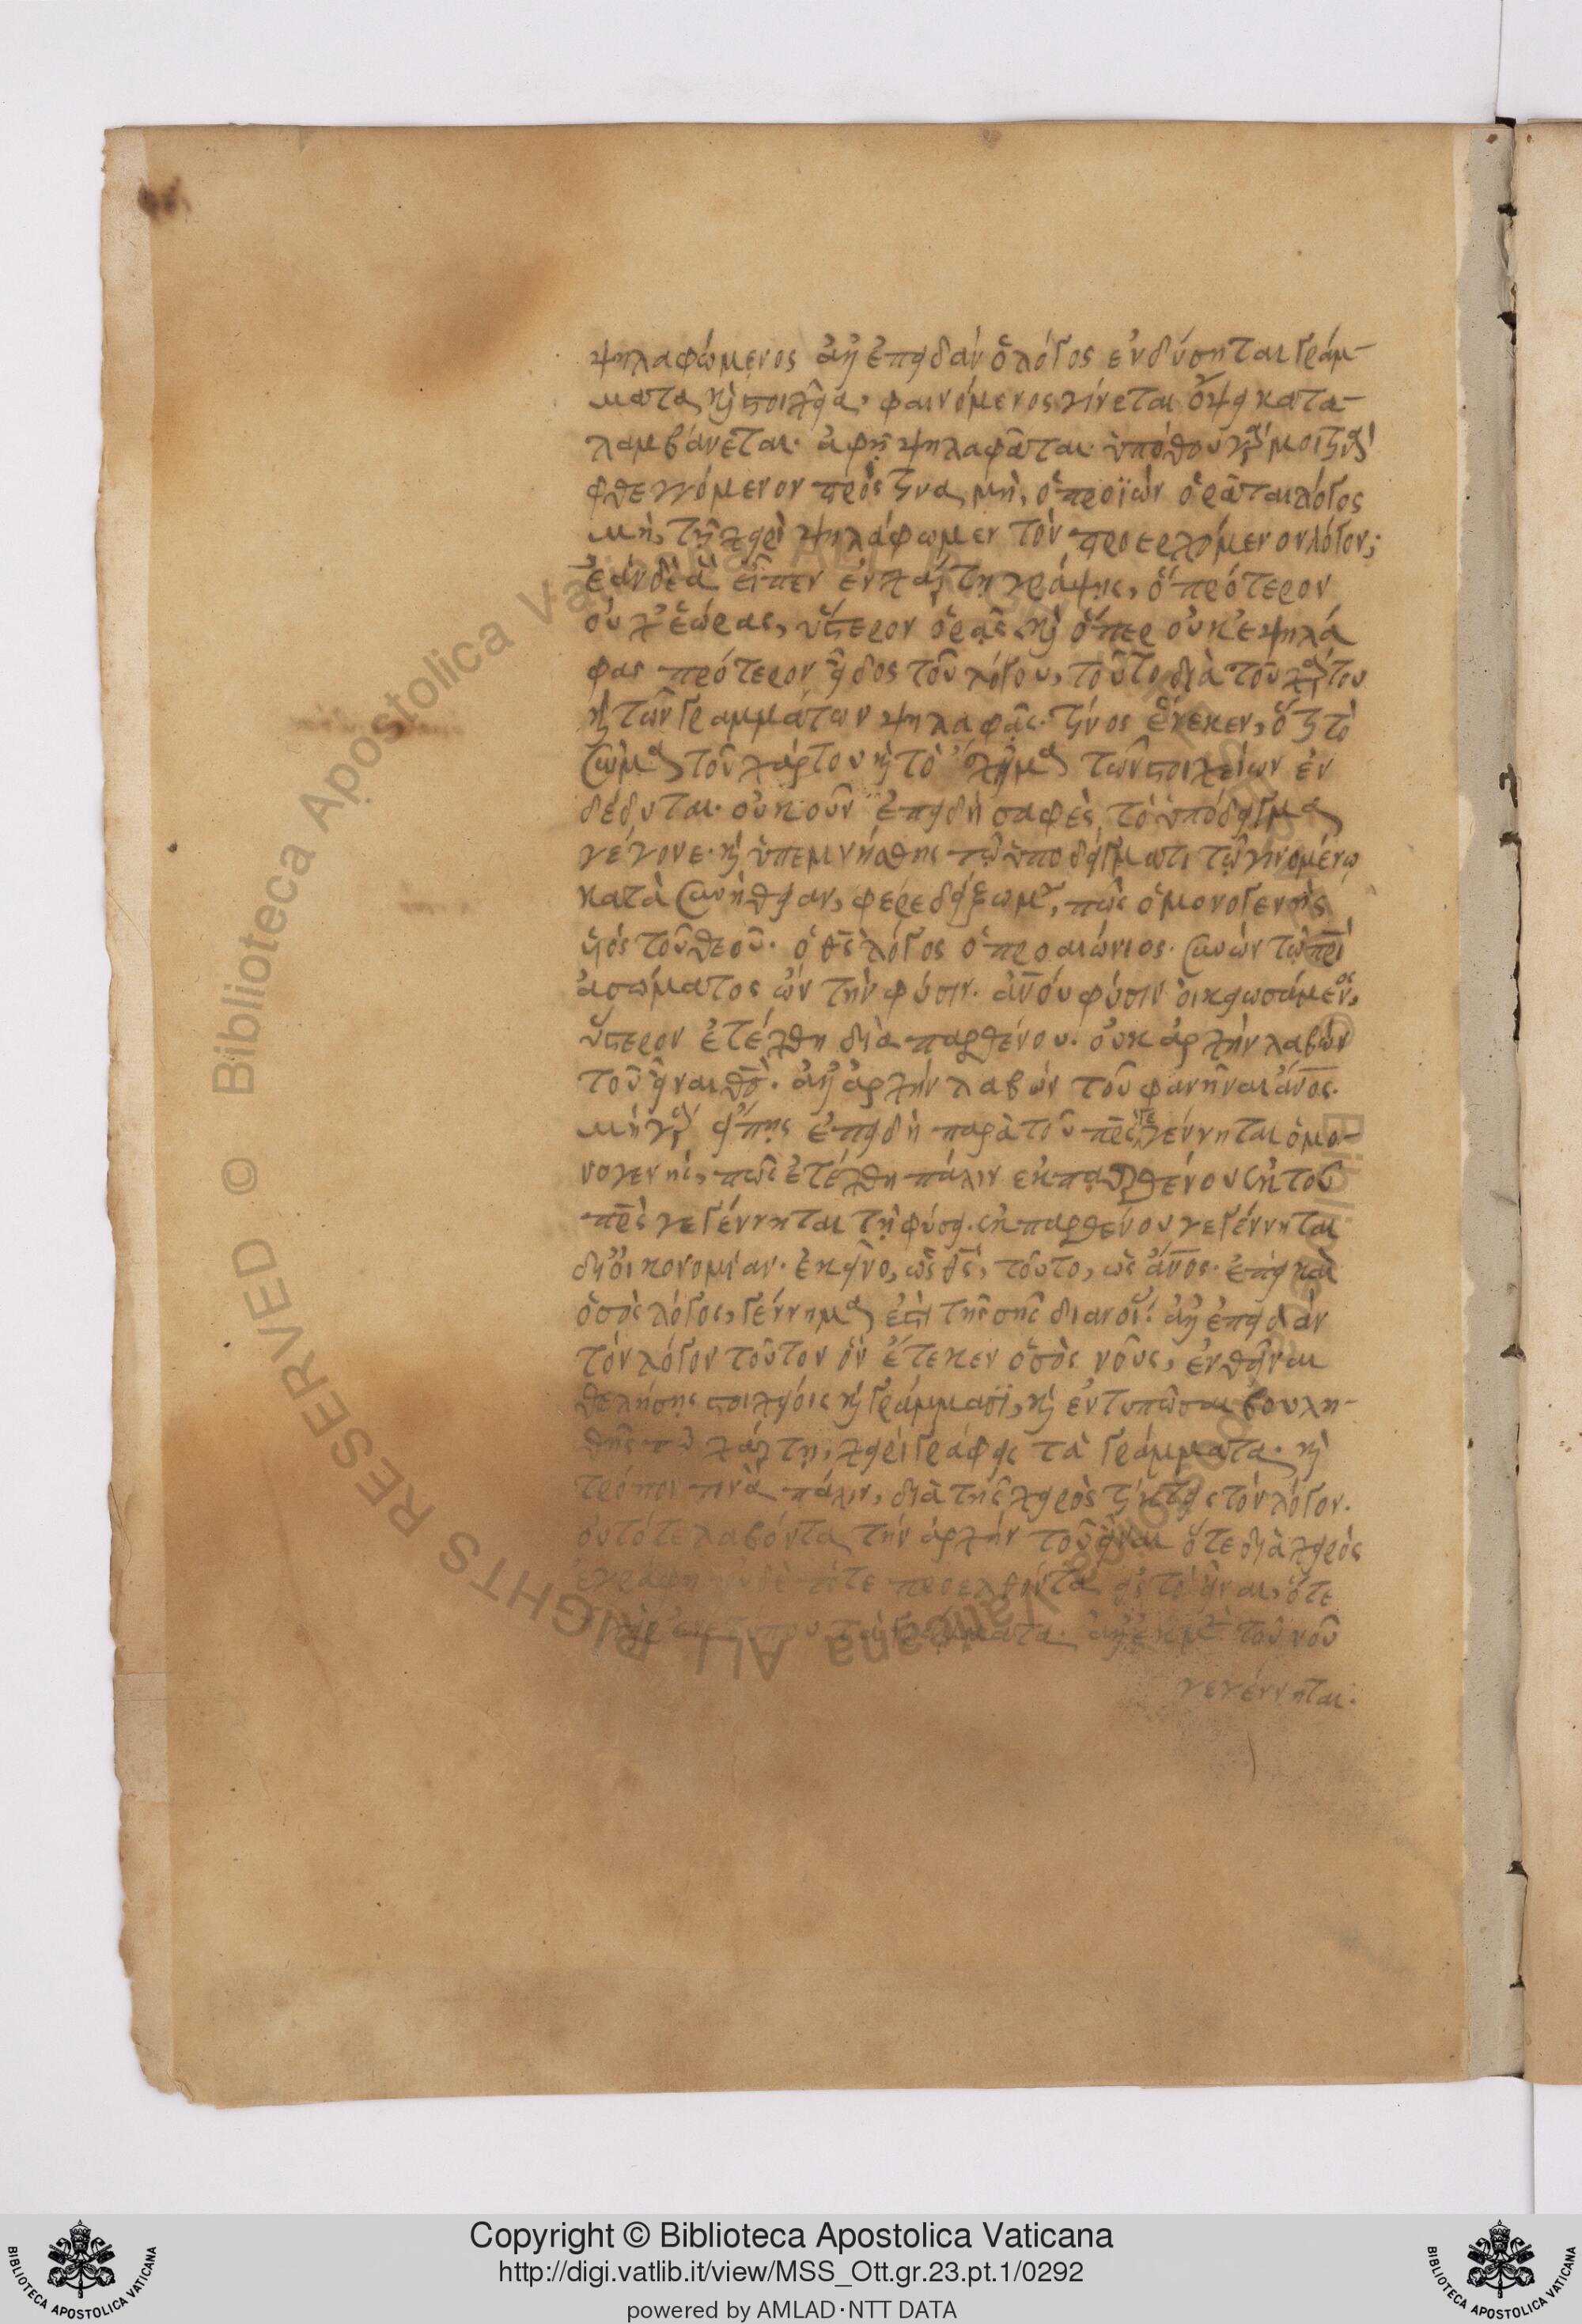 ψηλαφώμενος ἀλλ' ἐπειδὰν ὁ λόγος ἐνδύσηται γράμ-
ματα καὶ στοιχεῖα, φαινόμενος γίνεται ὄψει κατα-
λαμβάνεται. ἀφῇ ψηλαφᾶται. ὑπόθου γάρ μοι τινὰ
φθεγγόμενον πρός τινα, μὴ, ὁ προϊὼν ὁρᾶται λόγος
μὴ, τῇ χειρὶ ψηλάφωμεν τὸν προερχόμενον λόγον;
ἐὰν δὲ ἃ εἶπεν ἐν χάρτῃ γράψῃς, ὃ πρότερον
οὐχ ἑώρας, ὕστερον ὁρᾷς καὶ ὅπερ οὐκ ἐψηλά
φας πρότερον εἶδος τοῦ λόγου, τοῦτο διὰ τοῦ χάρτου
καὶ τῶν γραμμάτων ψηλαφᾷς. τίνος ἕνεκεν, ὅτι τὸ
σῶμα τοῦ χάρτου καὶ τὸ σχῆμα τῶν στοιχείων ἐν
δέδυται. οὐκοῦν ἐπειδὴ σαφὲς τὸ ὑπόδειγμα
γέγονε. καὶ ὑπεμνήσθης τῷ ὑποδείγματι τῷ γινομένῳ
κατὰ συνήθειαν, φέρε δείξωμεν, πῶς ὁ μονογενὴς
υἱὸς τοῦ θεοῦ. ὁ θς λόγος ὁ προαιώνιος. συνὼν τῷ πρι
ἀσώματος ὢν τὴν φύσιν. ανου φύσιν οἰκειωσάμενος,
ὕστερον ἐτέχθη διὰ παρθένου. οὐκ ἀρχὴν λαβὼν
τοῦ εἶναι θς. ἀλλ' ἀρχὴν λαβὼν τοῦ φανῆναι ανος.
μὴ γὰρ εἴπῃς ἐπειδὴ παρὰ τοῦ πρς γεγέννηται ὁ μο-
νογενής, πῶς ἐτέχθη πάλιν ἐκ παρθένου καὶ ἐκ τοῦ
πρς γεγέννηται τῇ φύσει. καὶ ἐκ παρθένου γεγέννηται
δι' οἰκονομίαν. ἐκεῖνο, ὡς θς, τοῦτο, ὡς ανος. ἐπεὶ καὶ
ὁ σὸς λόγος, γέννημα ἐστὶ τῆς σῆς διανοίας. ἀλλ' ἐπειδὰν
τὸν λόγον τοῦτον ὃν ἔτεκεν ὁ σὸς νοῦς, ἐνθεῖναι
θελήσῃς στοιχείοις καὶ γράμμασι, καὶ ἐντυπῶσαι βουλη-
θῇς τῷ χάρτῃ, χειρὶ γράφεις τὰ γράμματα. καὶ
τρόπον τινὰ πάλιν, διὰ τῆς χειρὸς τίκτεις τὸν λόγον.
οὐ τότε λαβόντα τὴν ἀρχὴν τοῦ εἶναι ὅτε διὰ χειρὸς
ἐγράφη οὐδὲ τότε προελθόντα εἰς τὸ εἶναι, ὅτε
τὰ γράμματα. ἀλλ' ἐκ μὲν τοῦ νοῦ
γεγέννηται.
Copyright © Biblioteca Apostolica Vaticana
http://digi.vatlib.it/view/MSS_Ott.gr.23.pt.1/0292
powered by AMLAD·NTT DATA